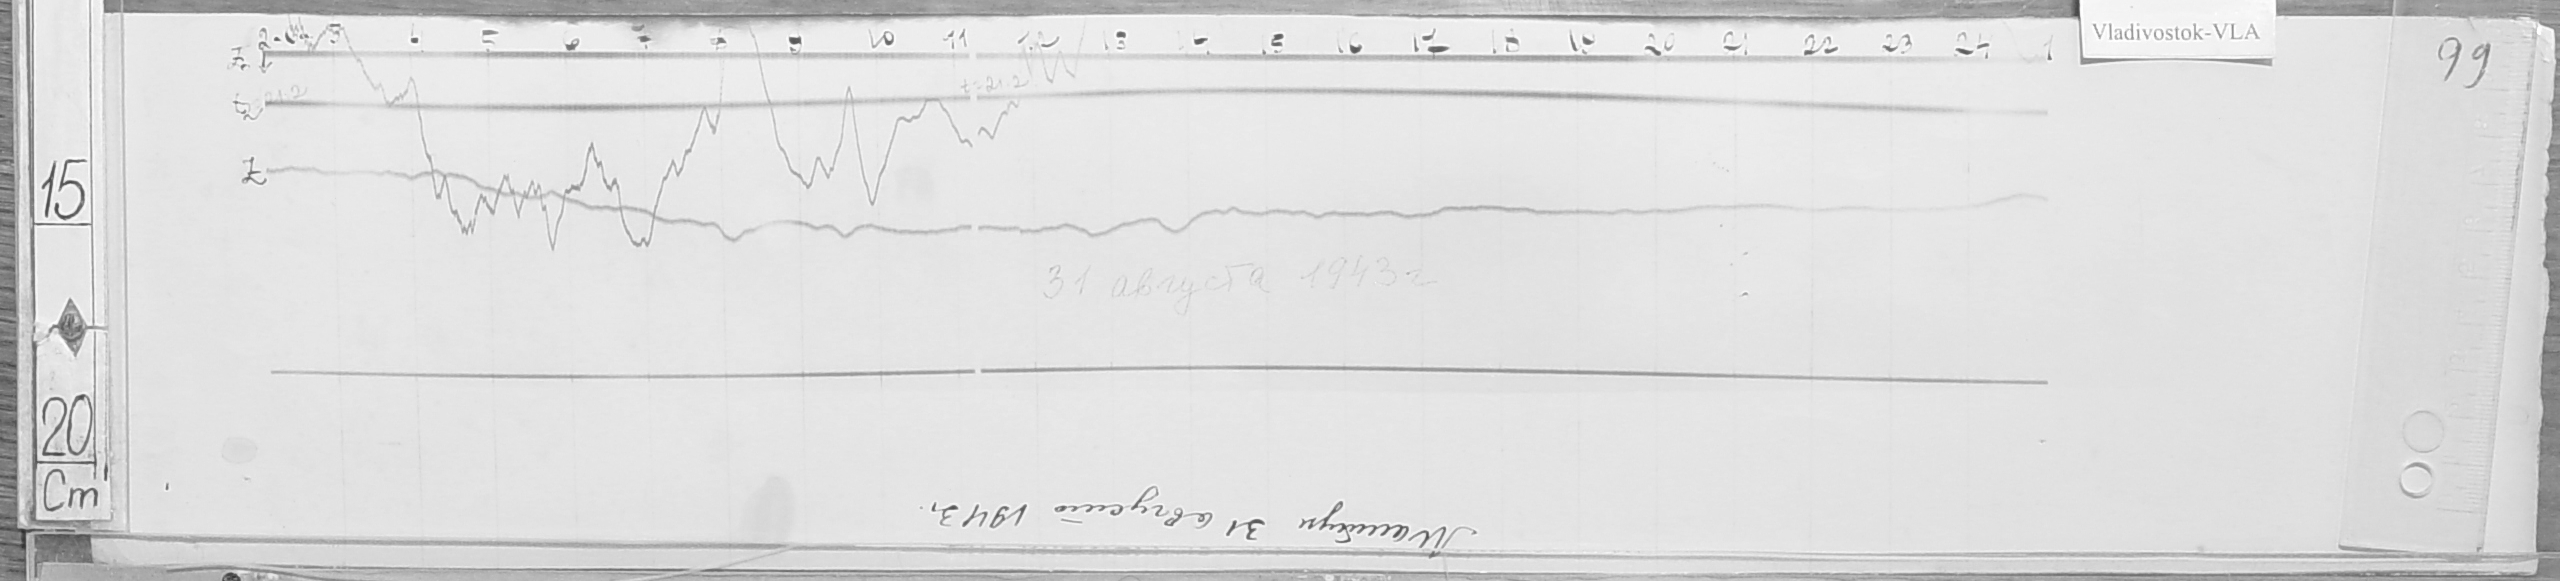 Vladivostok-VLA
99
3 4 5 6 7 8 9 10 11 12 13 14 15 16 17 18 19 20 21 22 23 24 1
t=21.2
Z
15
31 августа 1943 г
20
Cm
31 августа 1943 г.